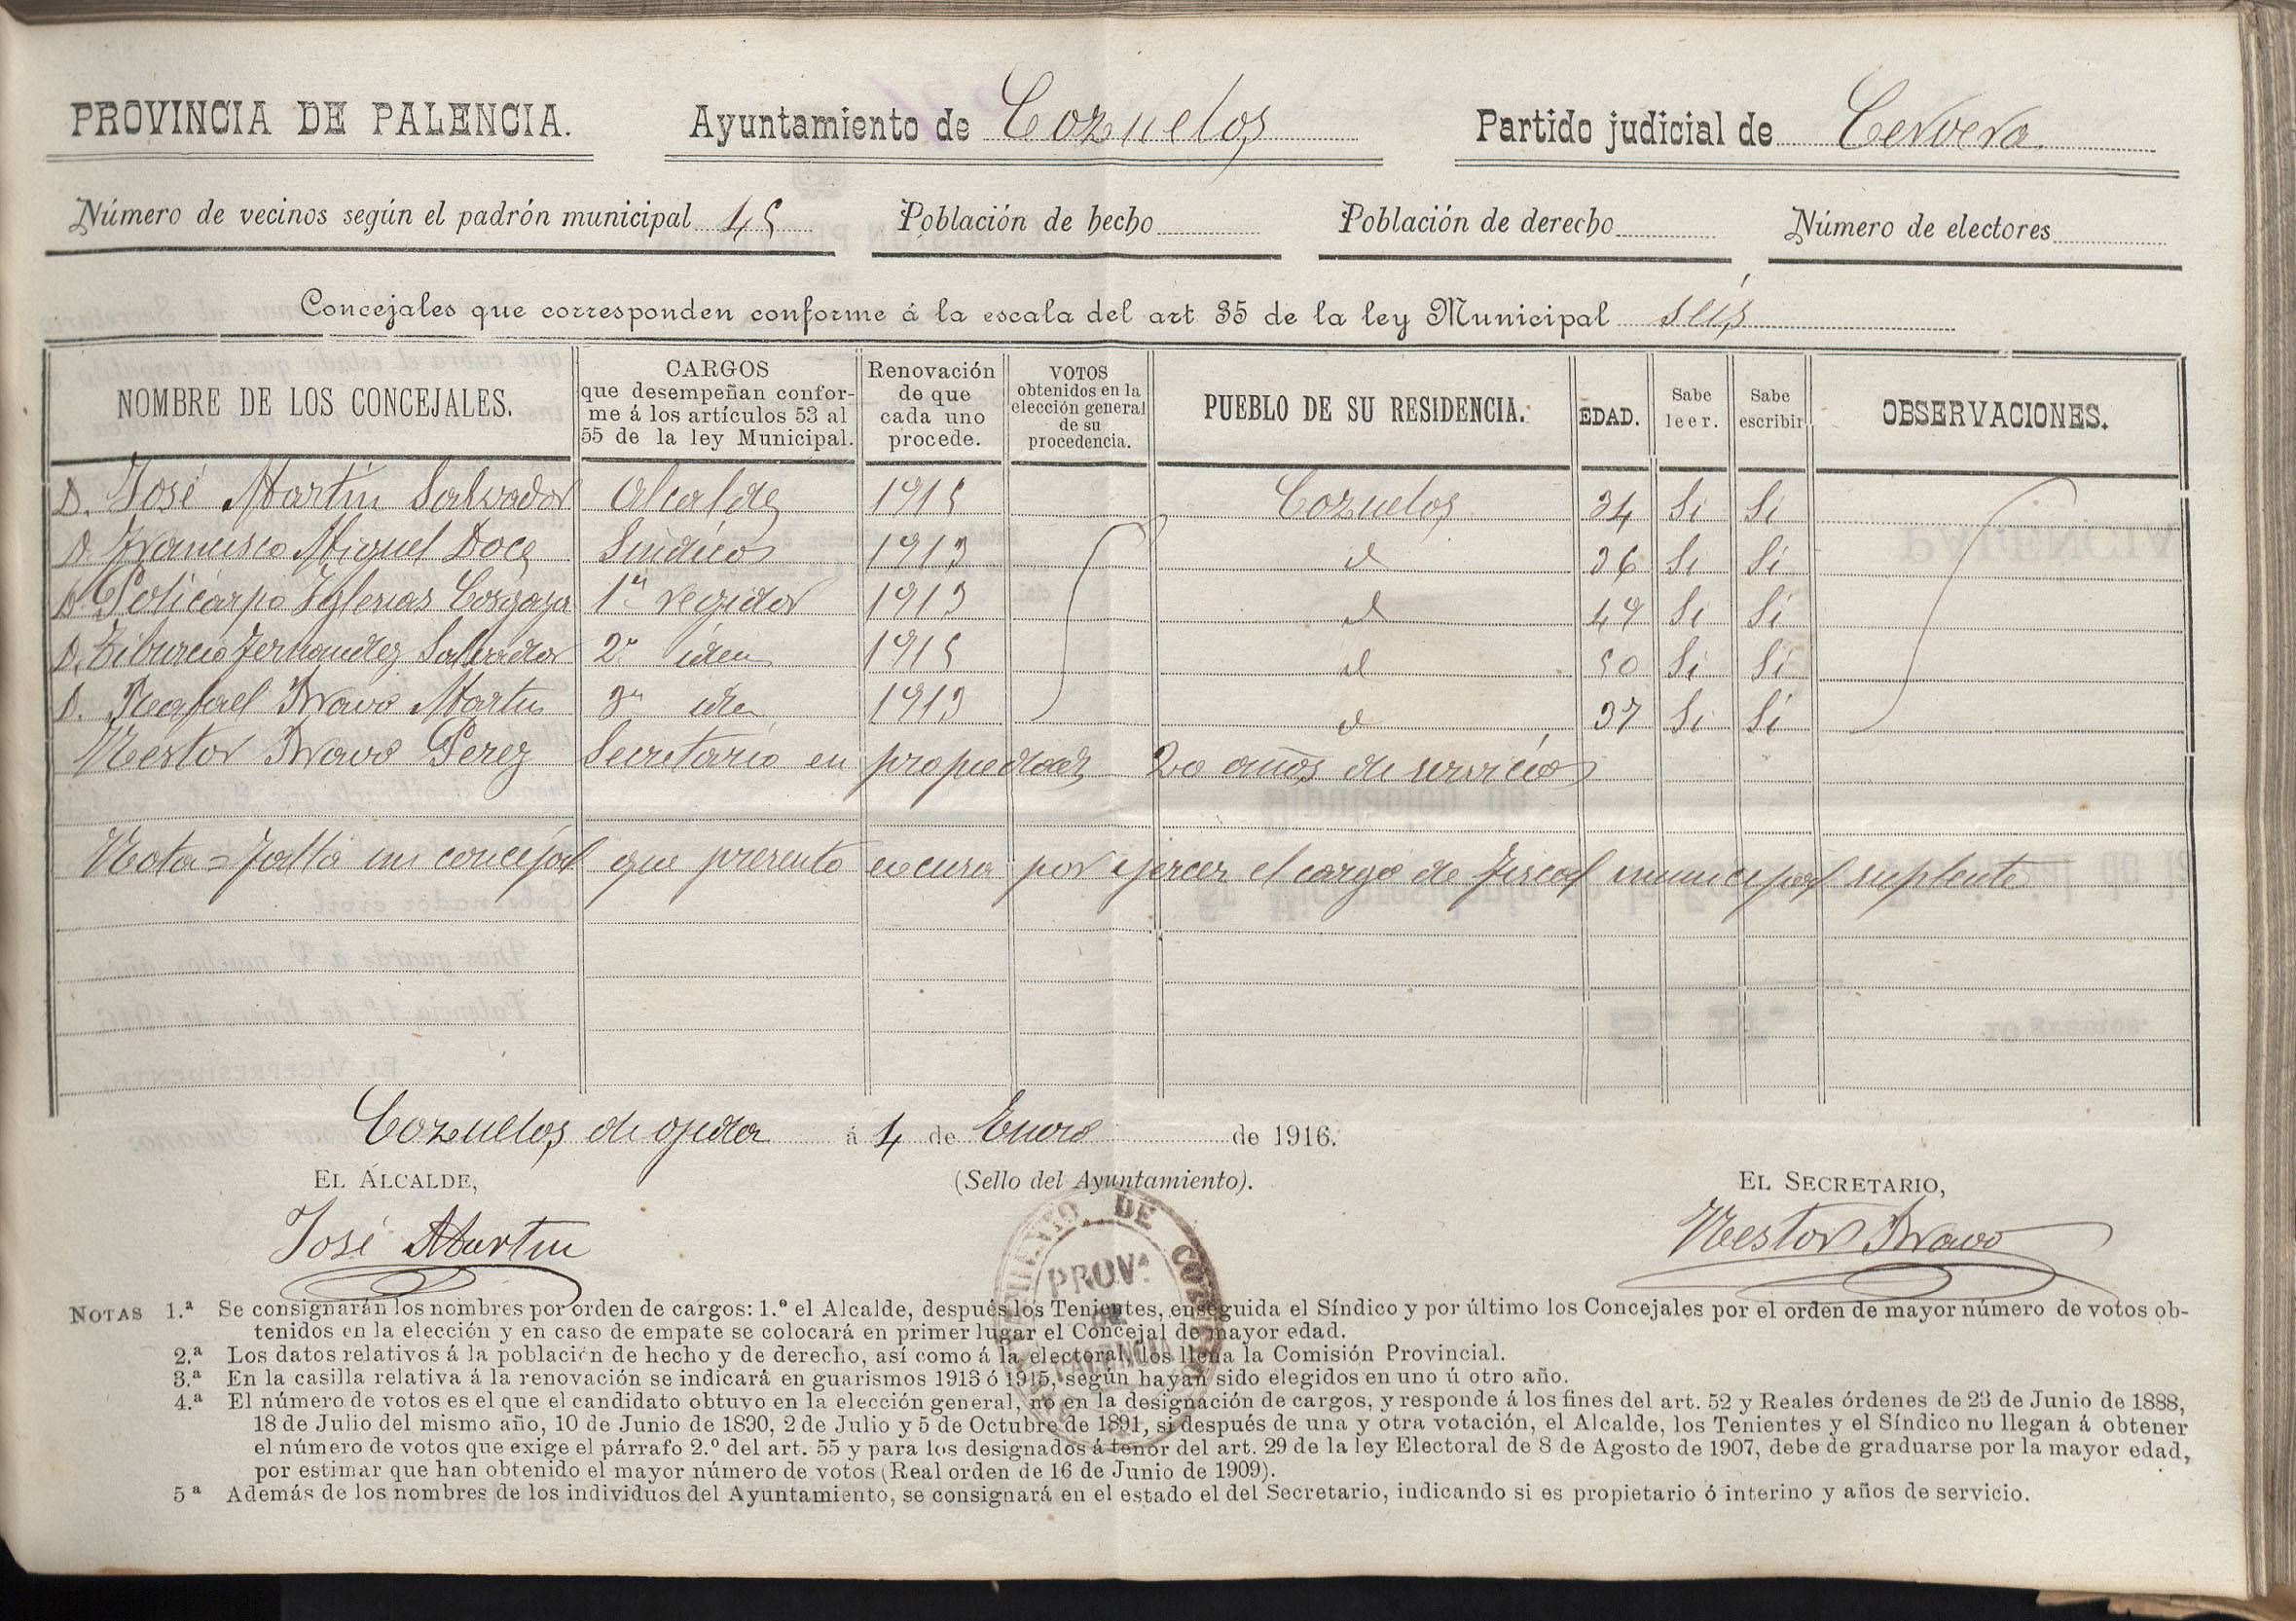 PROVINCIA DE PALENCIA. Ayuntamiento de Cozuelos Partido judicial de Cervera.
Número de vecinos según el padrón municipal 45 Población de hecho Población de derecho Número de electores
Concejales que corresponden conforme á la escala del art 35 de la ley Municipal seis
NOMBRE DE LOS CONCEJALES. CARGOS que desempeñan confor- me á los artículos 53 al 55 de la ley Municipal. Renovación de que cada uno procede. VOTOS obtenidos en la elección general de su procedencia. PUEBLO DE SU RESIDENCIA. EDAD. Sabe leer. Sabe escribir OBSERVACIONES.
D. José Martin Salvador Alcalde 1915 Cozuelos 34 Si Si
D. Francisco Miguel Doce Sindico 1913 id 36 Si Si
D. Policarpo Iglesias 1er regidor 1913 id 49 Si Si
D. Tiburcio Fernandez Salvador 2º idem 1915 id 50 Si Si
D. Rafael Bravo Martin 3er idem 1913 id 37 Si Si
Nestor Bravo Perez Secretario en propiedad 20 años de servicios
Nota = Falta un concejal que presento escusa por ejercer el cargo de Fiscal municipal suplente
Cozuelos de ojeda á 4 de Enero de 1916.
EL ALCALDE, (Sello del Ayuntamiento). EL SECRETARIO,
José Martin Nestor Bravo
AYUNTAMIENTO DE COZUELOS
PROVª DE PALENCIA
NOTAS 1.ª Se consignarán los nombres por orden de cargos: 1.º el Alcalde, después los Tenientes, enseguida el Síndico y por último los Concejales por el orden de mayor número de votos ob-
tenidos en la elección y en caso de empate se colocará en primer lugar el Concejal de mayor edad.
2.ª Los datos relativos á la población de hecho y de derecho, así como á la electoral, los llena la Comisión Provincial.
3.ª En la casilla relativa á la renovación se indicará en guarismos 1913 ó 1915, según hayan sido elegidos en uno ú otro año.
4.ª El número de votos es el que el candidato obtuvo en la elección general, no en la designación de cargos, y responde á los fines del art. 52 y Reales órdenes de 23 de Junio de 1888,
18 de Julio del mismo año, 10 de Junio de 1890, 2 de Julio y 5 de Octubre de 1891, si después de una y otra votación, el Alcalde, los Tenientes y el Síndico no llegan á obtener
el número de votos que exige el párrafo 2.º del art. 55 y para los designados á tenor del art. 29 de la ley Electoral de 8 de Agosto de 1907, debe de graduarse por la mayor edad,
por estimar que han obtenido el mayor número de votos (Real orden de 16 de Junio de 1909).
5ª Además de los nombres de los individuos del Ayuntamiento, se consignará en el estado el del Secretario, indicando si es propietario ó interino y años de servicio.